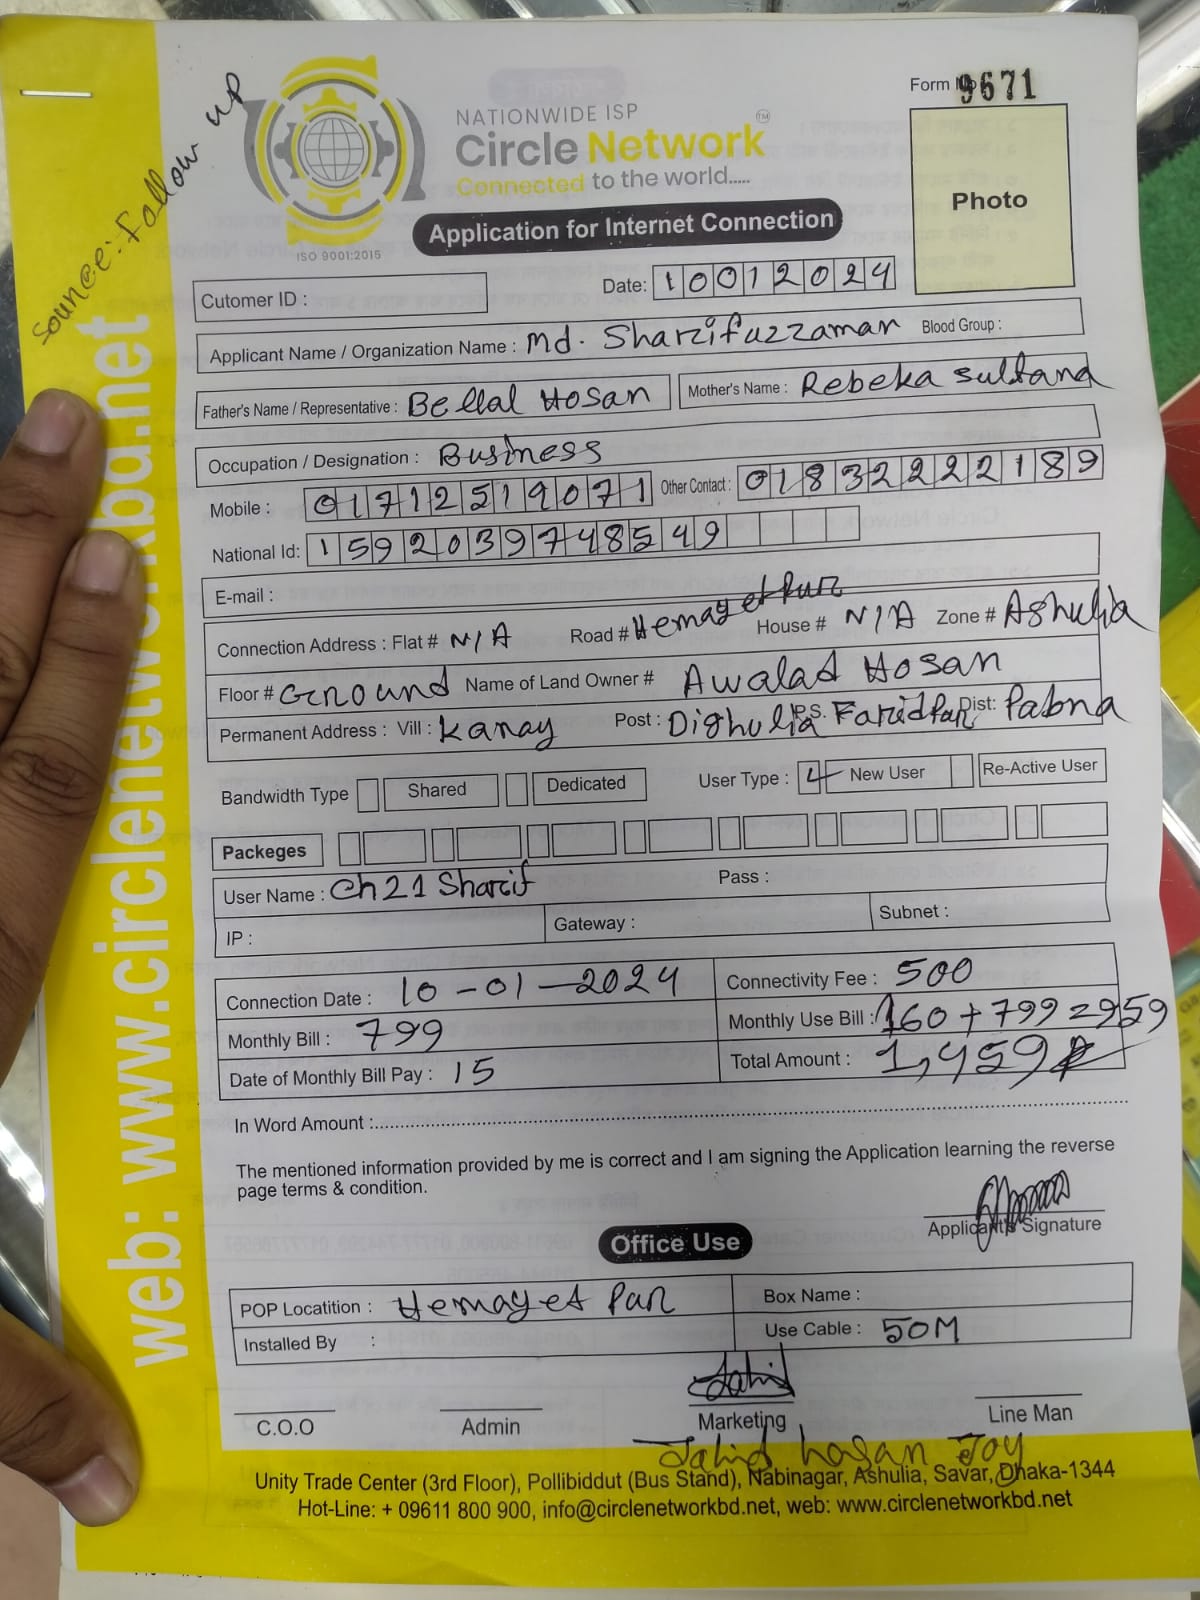 Source: Follow up
Form No 9671
NATIONWIDE ISP
Circle Network TM
Connected to the world.....
ISO 9001:2015
Photo
Application for Internet Connection
Cutomer ID :
Date: 10012024
Applicant Name / Organization Name : Md. Sharifuzzaman Blood Group :
Father's Name / Representative : Bellal Hosan Mother's Name : Rebeka Sultana
Occupation / Designation : Business
Mobile : 01712519071 Other Contact : 01832222189
National Id: 1592039748549
E-mail :
Connection Address : Flat # N/A Road # Hemayetpur House # N/A Zone # Ashulia
Floor # Ground Name of Land Owner # Awalad Hosan
Permanent Address : Vill : Kanay Post : Dighulia P.S. Faridpur Dist: Pabna
Bandwidth Type Shared Dedicated User Type : New User Re-Active User
Packeges
User Name : Ch21 Sharif Pass :
IP : Gateway : Subnet :
Connection Date : 10-01-2024 Connectivity Fee : 500
Monthly Bill : 799 Monthly Use Bill : 160+799=959
Date of Monthly Bill Pay : 15 Total Amount : 1,459
In Word Amount :
The mentioned information provided by me is correct and I am signing the Application learning the reverse
page terms & condition.
Applicant's Signature
Office Use
POP Locatition : Hemayet Pur Box Name :
Installed By : Use Cable : 50M
Jahid
C.O.O Admin Marketing Line Man
Jahid hasan Joy
Unity Trade Center (3rd Floor), Pollibiddut (Bus Stand), Nabinagar, Ashulia, Savar, Dhaka-1344
Hot-Line: + 09611 800 900, info@circlenetworkbd.net, web: www.circlenetworkbd.net
web: www.circlenetworkbd.net